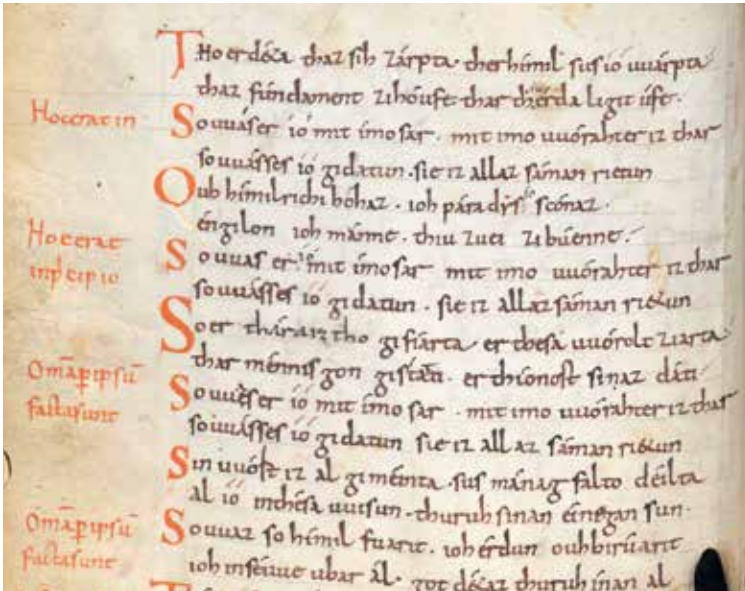 Tho er déta thaz sih zárpta· ther hímil sus ió uuárpta
thaz fúndament zi hóufe· thar thi érda ligit úfe·
Hoc erat in
So uuás er ió mit imo sar · mit imo uuórahter iz thar
so uuásses ió gidatun · sie iz allaz sáman rietun
Ouh hímilrichi hóhaz · ioh páradýs scónaz ·
éngilon ioh mánne · thiu zuei zi búenne ·
Hoc erat
in p̄cipio
So uuas er ió mit imo sar mit imo uuórahter iz thar
so uuásses ió gidatun · sie iz allaz sáman rietun
So er thára iz tho gifúarta · er thesa uuórolt ziarta
thar ménnisgon gistati · er thíonost sinaz dáti·
Om̄a ꝑ ipsū
facta sunt
So uuás er ió mit imo sar · mit imo uuórahter iz thar
so uuásses ió gidatun sie iz allaz sáman rietun
Sin uuórt iz al giméinta · sus mánag falto déilta
al ió in thésa uuisun · thuruh sinan éinegan sun·
Om̄a ꝑ ipsū
facta sunt
So uuaz so hímil fuarit · ioh érdun ouh birúarit
ioh in séuue ubar ál · got détaz thuruh ínan al